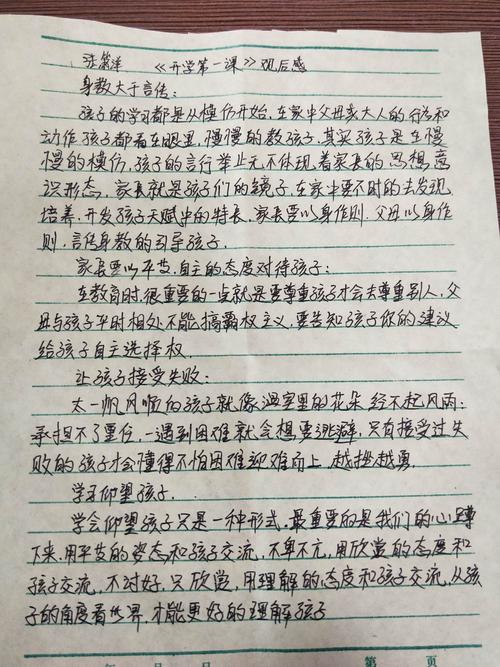 《开学第一课》观后感
身教大于言传:
孩子的学习都是从模仿开始,在家中父母亲大人的行为和
动作孩子都看在眼里,慢慢的教孩子,其实孩子是在慢
慢的模仿,孩子的言行举止无不体现着家长的思想,意
识形态,家长就是孩子们的镜子,在家中要不时的去发现
培养,开发孩子天赋中的特长,家长要以身作则.父母以身作
则,言传身教的引导孩子.
家长要以平等,自主的态度对待孩子:
在教育时,很重要的一点就是要尊重孩子才会去尊重别人,父
母与孩子平时相处不能搞霸权主义,要告知孩子你的建议
给孩子自主选择权.
让孩子接受失败:
太一帆风顺的孩子就像温室里的花朵经不起风雨:
承担不了重任,一遇到困难就会想要逃避,只有接受过失
败的孩子才会懂得不怕困难迎难而上,越挫越勇.
学习仰望孩子.
学会仰望孩子只是一种形式,最重要的是我们的心蹲
下来,用平等的姿态和孩子交流,不卑不亢,用欣赏的态度和
孩子交流,不讨好,只欣赏,用理解的态度和孩子交流,从孩
子的角度看世界,才能更好的理解孩子
年 月 日 第 页